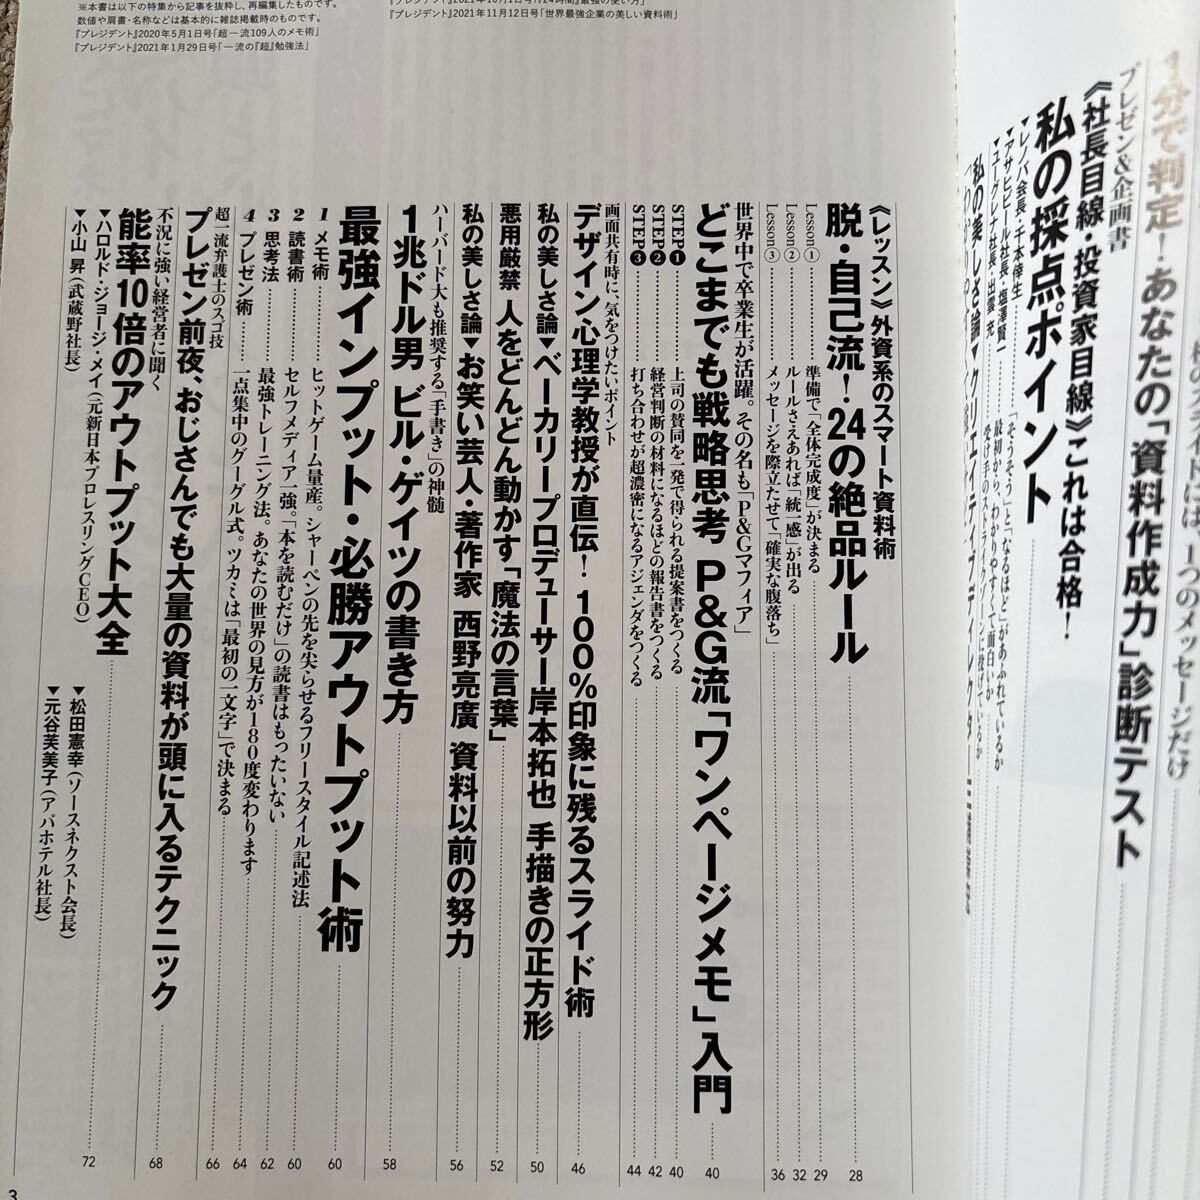 1分で判定！あなたの「資料作成力」診断テスト
プレゼン&企画書
《社長目線・投資家目線》これは合格！
私の採点ポイント
▼レノバ会長・千本倖生
「そうそう」と、「なるほど」があふれているか
▼アサヒビール社長・塩澤賢一
最初から、わかりやすくて面白いか
▼ユーグレナ社長・出雲 充
私の美しさ論▼クリエイティブディレクター
※本書は以下の特集から記事を抜粋し、再編集したものです。
数値や肩書・名称などは基本的に雑誌掲載時のものです。
『プレジデント』2020年5月1日号「超一流109人のメモ術」
『プレジデント』2021年1月29日号「一流の『超』勉強法」
『プレジデント』2021年11月12日号「世界最強企業の美しい資料術」
《レッスン》外資系のスマート資料術
脱・自己流！24の絶品ルール 28
Lesson① 準備で「全体完成度」が決まる 29
Lesson② ルールさえあれば「統一感」が出る 32
Lesson③ メッセージを際立たせて「確実な腹落ち」 36
世界中で卒業生が活躍。その名も「P&Gマフィア」
どこまでも戦略思考 P&G流「ワンページメモ」入門 40
STEP❶ 上司の賛同を一発で得られる提案書をつくる 40
STEP❷ 経営判断の材料になるほどの報告書をつくる 42
STEP❸ 打ち合わせが超濃密になるアジェンダをつくる 44
画面共有時に、気をつけたいポイント
デザイン心理学教授が直伝！100%印象に残るスライド術 46
私の美しさ論▼ベーカリープロデューサー 岸本拓也 手描きの正方形 50
悪用厳禁 人をどんどん動かす「魔法の言葉」 52
私の美しさ論▼お笑い芸人・著作家 西野亮廣 資料以前の努力 56
ハーバード大も推奨する「手書き」の神髄
1兆ドル男 ビル・ゲイツの書き方 58
最強インプット・必勝アウトプット術 60
1 メモ術 ヒットゲーム量産。シャーペンの先を尖らせるフリースタイル記述法 60
2 読書術 セルフメディア一強。「本を読むだけ」の読書はもったいない
3 思考法 最強トレーニング法。あなたの世界の見方が180度変わります 62
4 プレゼン術 一点集中のグーグル式。ツカミは「最初の一文字」で決まる 64
超一流弁護士のスゴ技
プレゼン前夜、おじさんでも大量の資料が頭に入るテクニック 66
不況に強い経営者に聞く
能率10倍のアウトプット大全 68
▼ハロルド・ジョージ・メイ（元新日本プロレスリングCEO） ▼松田憲幸（ソースネクスト会長）
▼小山 昇（武蔵野社長） ▼元谷芙美子（アパホテル社長） 72
3